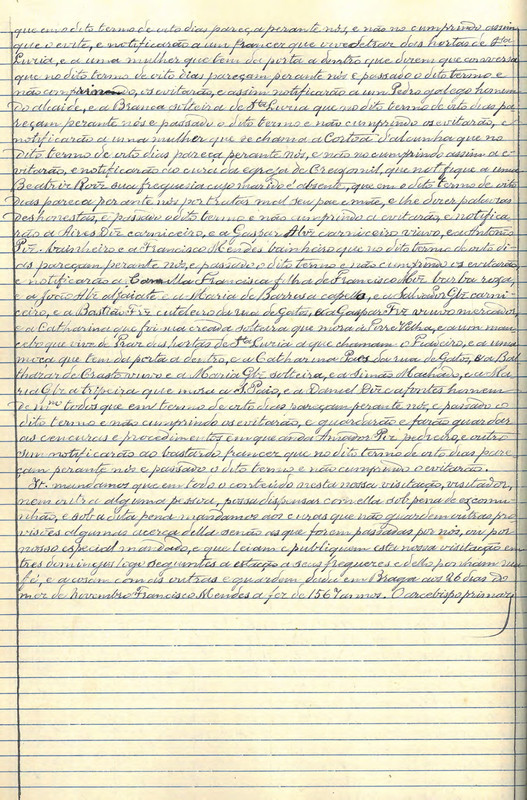 que em o dito termo de oito dias pareça perante nós, e não no cumprindo assim
que o evite, e notificarão a um francez que vive detraz dos hortas de Sta
Luzia, e a uma mulher que tem de porta a dentro que dizem que conversa
que no dito termo de oito dias pareçam perante nós e passado o dito termo e
não cumprindo, os evitarão, e assim notificarão a um Pedro galego homem
do alcaide, e a Branca solteira de Sta Luzia que no dito termo de oito dias pa-
reçam perante nós e passado o dito termo e não cumprindo os evitarão, e
notificarão a uma mulher que se chama a Cortoa d'alcunha que no
dito termo de oito dias pareça perante nós, e não no cumprindo assim a e-
vitarão, e notificarão ao cura da egreja de Creixomil, que notifique a uma
Beatriz Roiz sua freguesia cujo marido é absente, que em o dito termo de oito
dias pareça perante nós por tratar mal seu pae e mãe, e lhe dizer palavras
deshonestas, e passado o dito termo e não cumprindo a evitarão, e notifica-
rão a Aires Diz carniceiro, e a Gaspar Alvz carniceiro viuvo, e a Antonio
Piz bainheiro e a Francisco Mendes bainheiro que no dito termo de oito di-
as pareçam perante nós, e passado o dito termo e não cumprindo os evitarão,
e notificarão a Francisca filha de Francisco Alvz barba roxa,
e a João Alvz alfaiate e a Maria de Barrosa capella, e a Salvador Glz carni-
ceiro, e a Bastião Frz cutileiro da rua de Gatos, e a Gaspar Frz viuvo mercador,
e a Catharina que foi sua creada solteira que mora á Torre Velha, e a um man-
cebo que vive de Poar dos hortas de Sta Luzia a que chamam o Padeiro, e a uma
moça que tem da porta a dentro, e a Catharina Paes da rua de Gatos, e a Bal-
thazar de Crasto viuvo e a Maria Glz solteira, e a Simão Machado, e a Ma-
ria Glz a tripeira que mora a S. Paio, e a Daniel Diz cafontes homem
de todos que em termo de oito dias pareçam perante nós, e passado o
dito termo e não cumprindo os evitarão, e guardarão e farão guardar
as censuras e procedimentos em que anda Amador Piz pedreiro, e outro
sim notificarão ao bastardo francez que no dito termo de oito dias pare-
çam perante nós e passado o dito termo e não cumprindo o evitarão.
It. mandamos que em todo o conteúdo nesta nossa visitação, visitador,
nem outra alguma pessoa, possa dispensar com ella sob pena de excomu-
nhão, e sob a dita pena mandamos aos curas que não guardem outras pro-
visões algumas acerca della senão as que forem passadas por nós, ou por
nosso especial mandado, e que leiam e publiquem esta nossa visitação em
tres domingos logo seguintes á estação a seus freguezes e dello ponham sua
fé, e a cosam com as outras e guardem, dada em Braga aos 26 dias do
mez de novembro Francisco Mendes a fez de 1567 annos. O arcebispo primaz